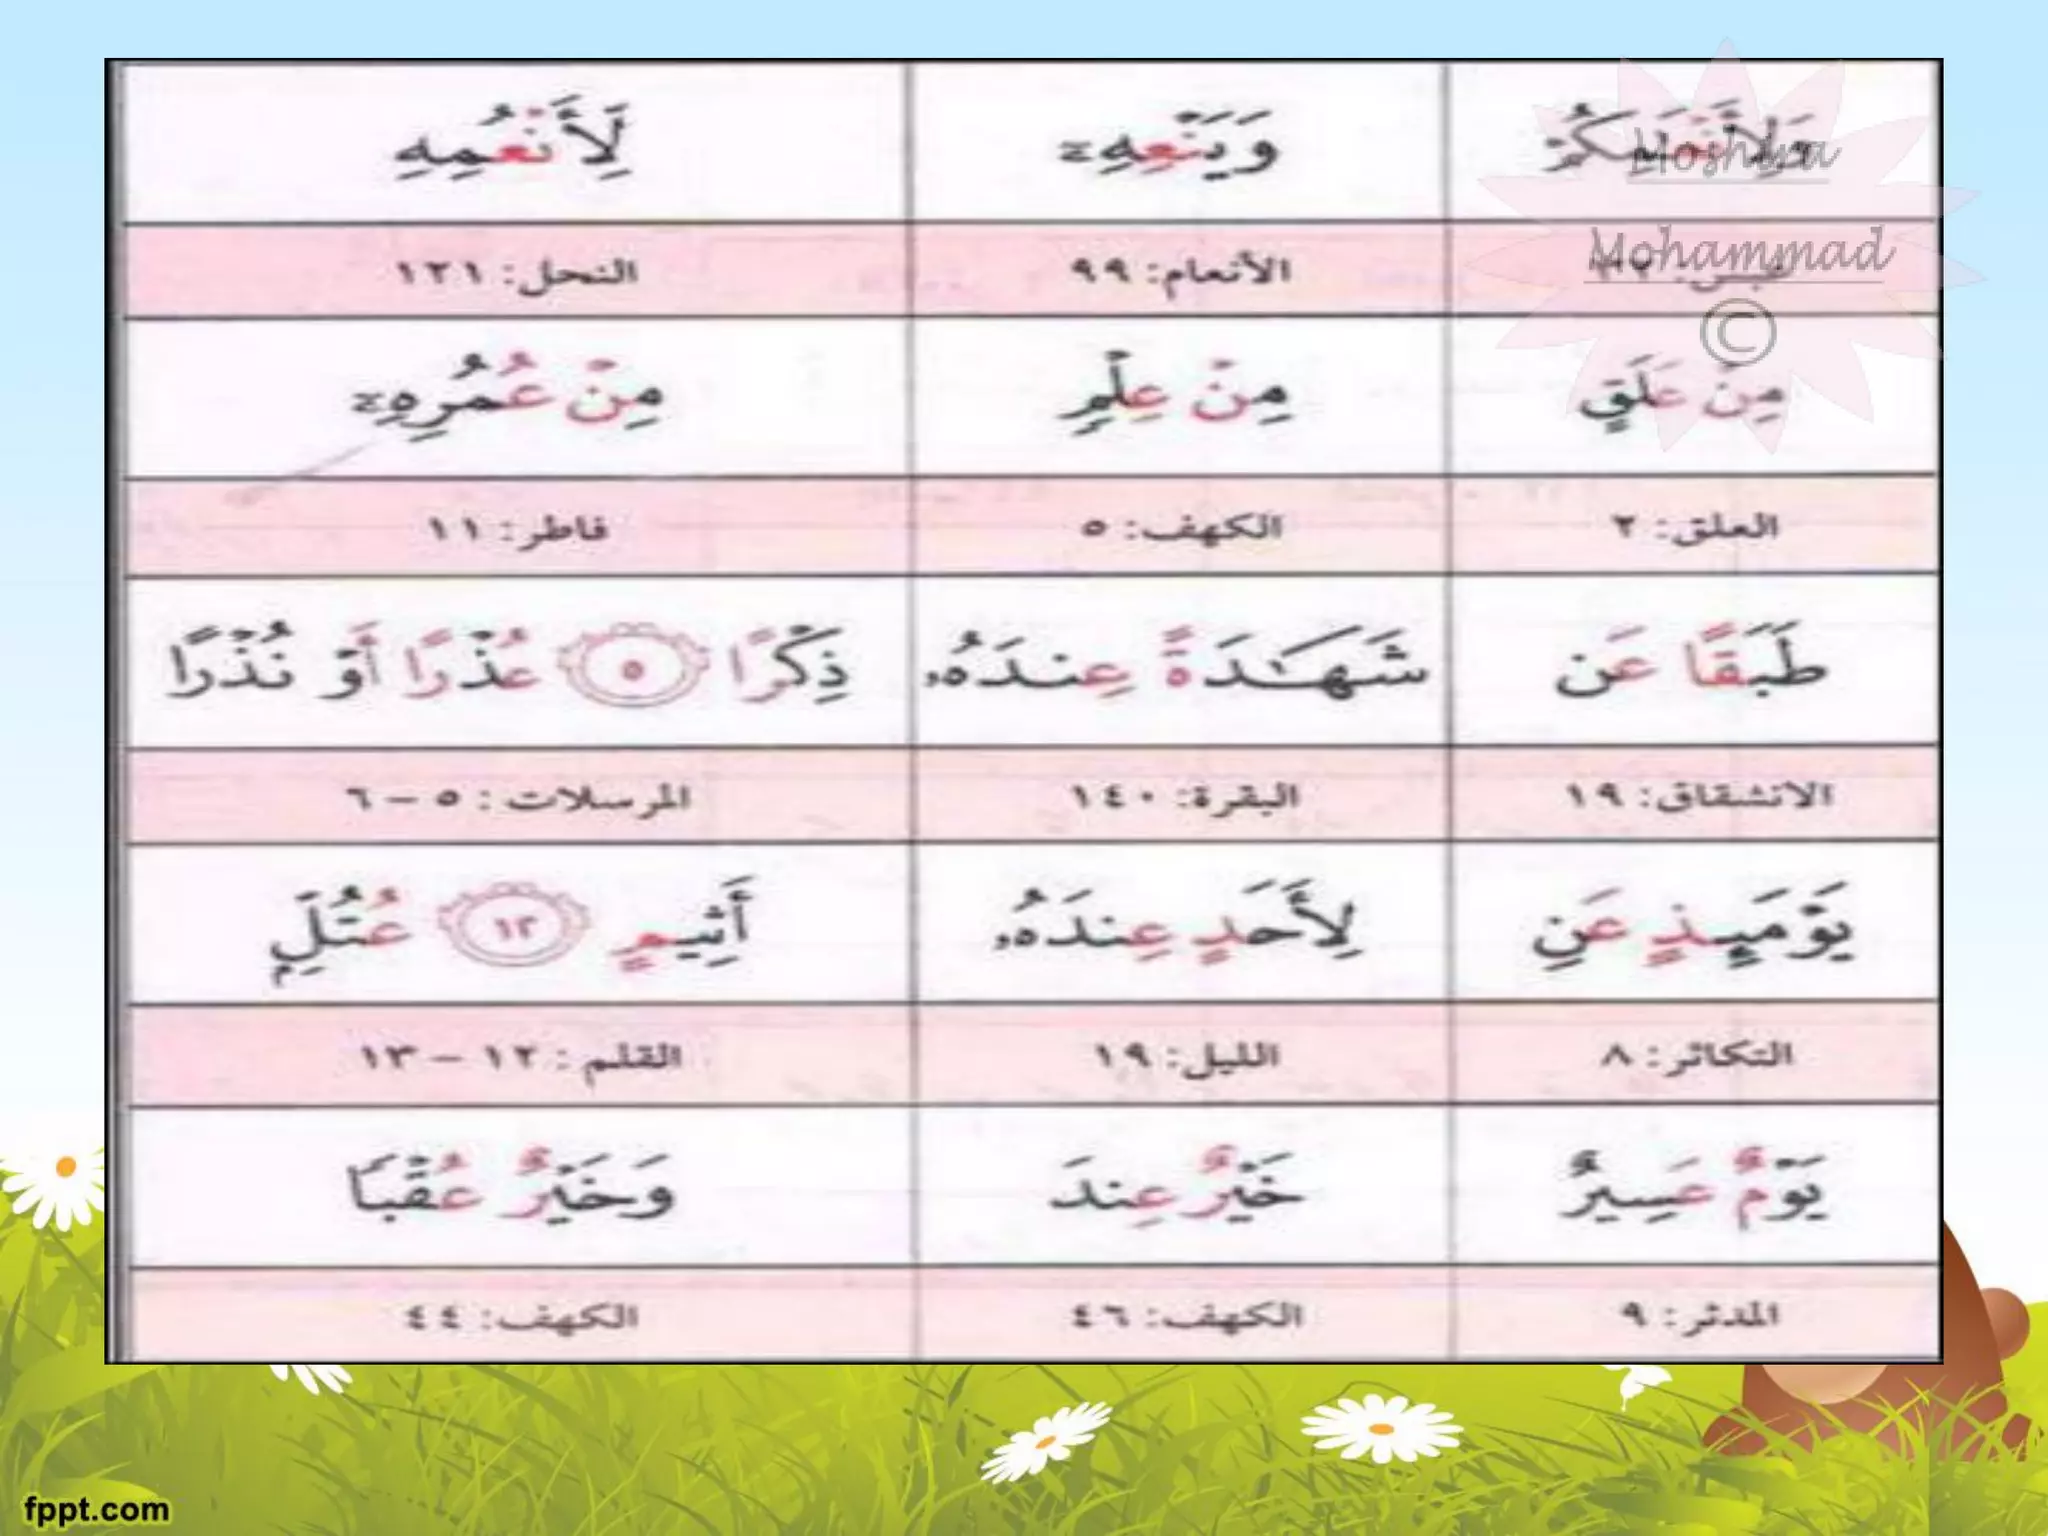 وَلِأَنْعَٰمِكُمْ وَيَنْعِهِۦٓ لِأَنْعُمِهِ
عبس: ٣٢ الأنعام: ٩٩ النحل: ١٢١
مِنْ عَلَقٍ مِنْ عِلْمٍ مِنْ عُمُرِهِۦٓ
العلق: ٢ الكهف: ٥ فاطر: ١١
طَبَقًا عَن شَهَٰدَةً عِندَهُۥ ذِكْرًا ٥ عُذْرًا أَوْ نُذْرًا
الانشقاق: ١٩ البقرة: ١٤٠ المرسلات: ٥ – ٦
يَوْمَئِذٍ عَنِ لِأَحَدٍ عِندَهُۥ أَثِيمٍ ١٢ عُتُلٍّ
التكاثر: ٨ الليل: ١٩ القلم: ١٢ – ١٣
يَوْمٌ عَسِيرٌ خَيْرٌ عِندَ وَخَيْرٌ عُقْبًا
المدثر: ٩ الكهف: ٤٦ الكهف: ٤٤
Moshira
Mohammad
©
fppt.com